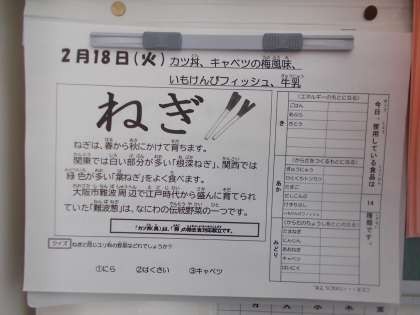 2月18日(火) カツ丼、キャベツの梅風味、
いもけんぴフィッシュ、牛乳
ねぎ
ねぎは、春から秋にかけて育ちます。
関東では白い部分が多い「根深ねぎ」、関西では
緑色が多い「葉ねぎ」をよく食べます。
大阪市難波周辺で江戸時代から盛んに育てられ
ていた「難波葱」は、なにわの伝統野菜の一つです。
クイズ ねぎと同じユリ科の野菜はどれでしょうか?
①にら ②はくさい ③キャベツ
今日、使用している食品は 14 種類です。
(エネルギーのもとになる)
き
ごはん
あぶら
さとう
(からだをつくるもとになる)
あか
ぎゅうにゅう
たまご
みどり
たまねぎ
にんじん
キャベツ